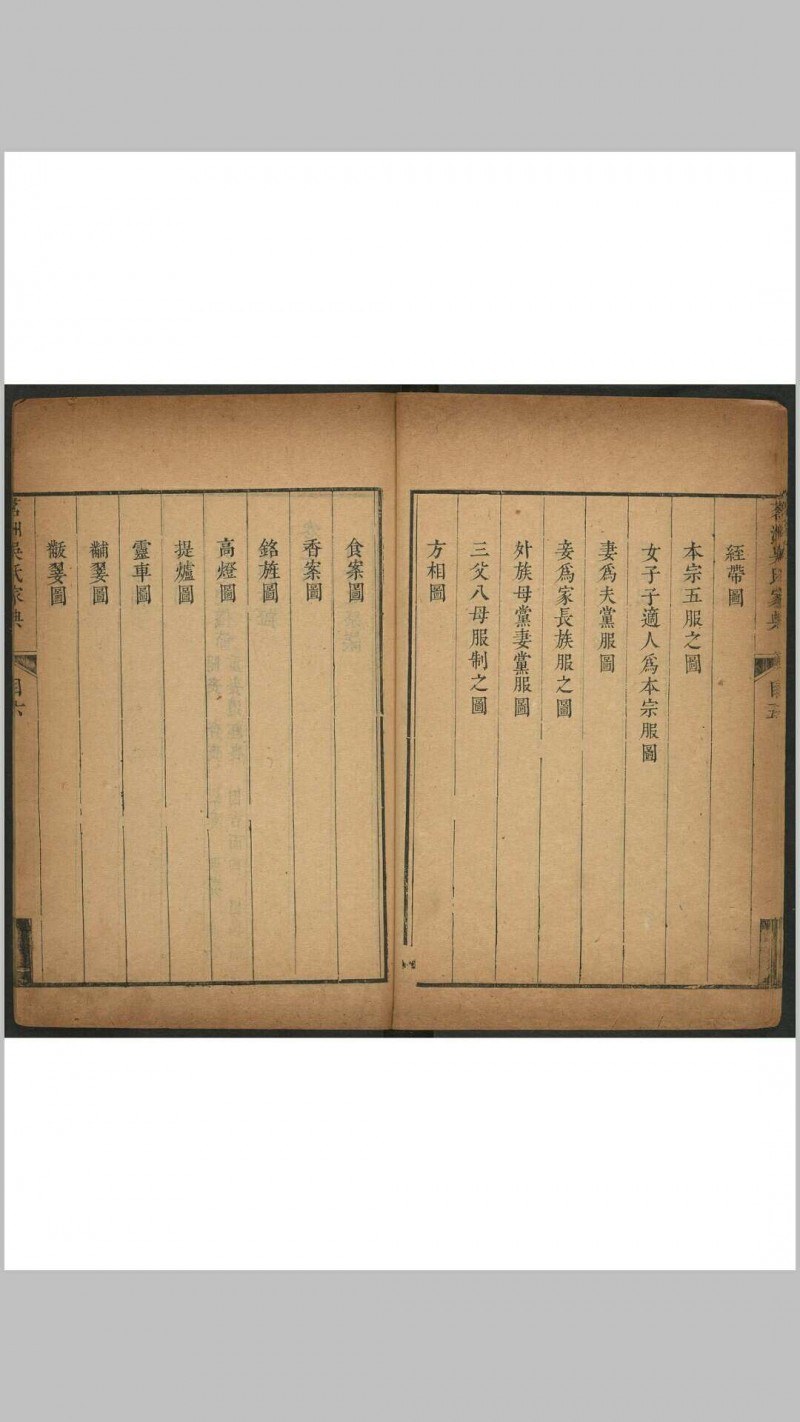 茗洲吳氏家典
目五
絰帶圖
本宗五服之圖
女子子適人爲本宗服圖
妻爲夫黨服圖
妾爲家長族服之圖
外族母黨妻黨服圖
三父八母服制之圖
方相圖
食案圖
香案圖
銘旌圖
高燈圖
提爐圖
靈車圖
黼翣圖
黻翣圖
茗洲吳氏家典
目六